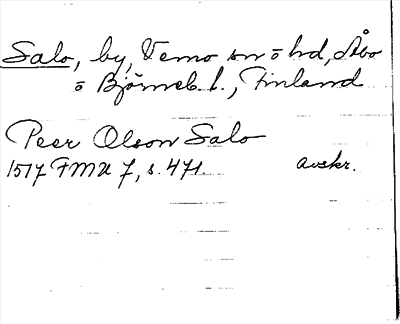 Salo, by, Vemo sn o hd, Åbo
o Björneb. l., Finland
Peer Olson Salo
1517 FMU 7, s. 471. avskr.